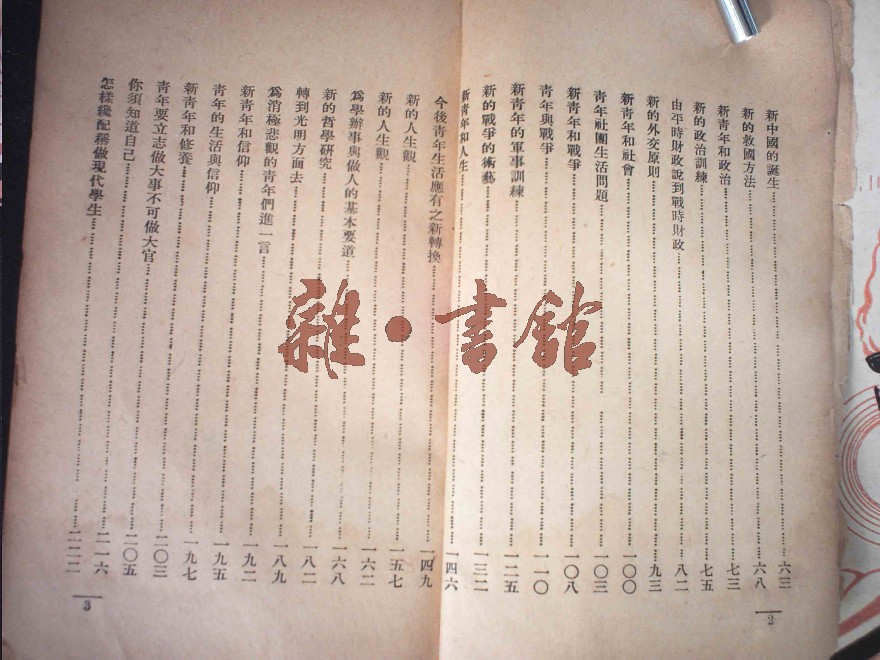 新中國的誕生……六三
新的救國方法……六八
新青年和政治……七三
新的政治訓練……七五
由平時財政說到戰時財政……八二
新的外交原則……九三
新青年和社會……一〇〇
青年社團生活問題……一〇三
新青年和戰爭……一〇八
青年與戰爭……一一〇
新青年的軍事訓練……一二五
新的戰爭的術藝……一三二
新青年和人生……一四六
2
今後青年生活應有之新轉換……一四九
新的人生觀……一五七
新的人生觀……一六二
爲學辦事與做人的基本要道……一六八
新的哲學研究……一八二
轉到光明方面去
爲消極悲觀的青年們進一言……一八九
新青年和信仰……一九二
青年的生活與信仰……一九五
新青年和修養……一九七
青年要立志做大事不可做大官……二〇三
你須知道自己……二〇五
怎樣纔配稱做現代學生……二一六
3
雜·書館